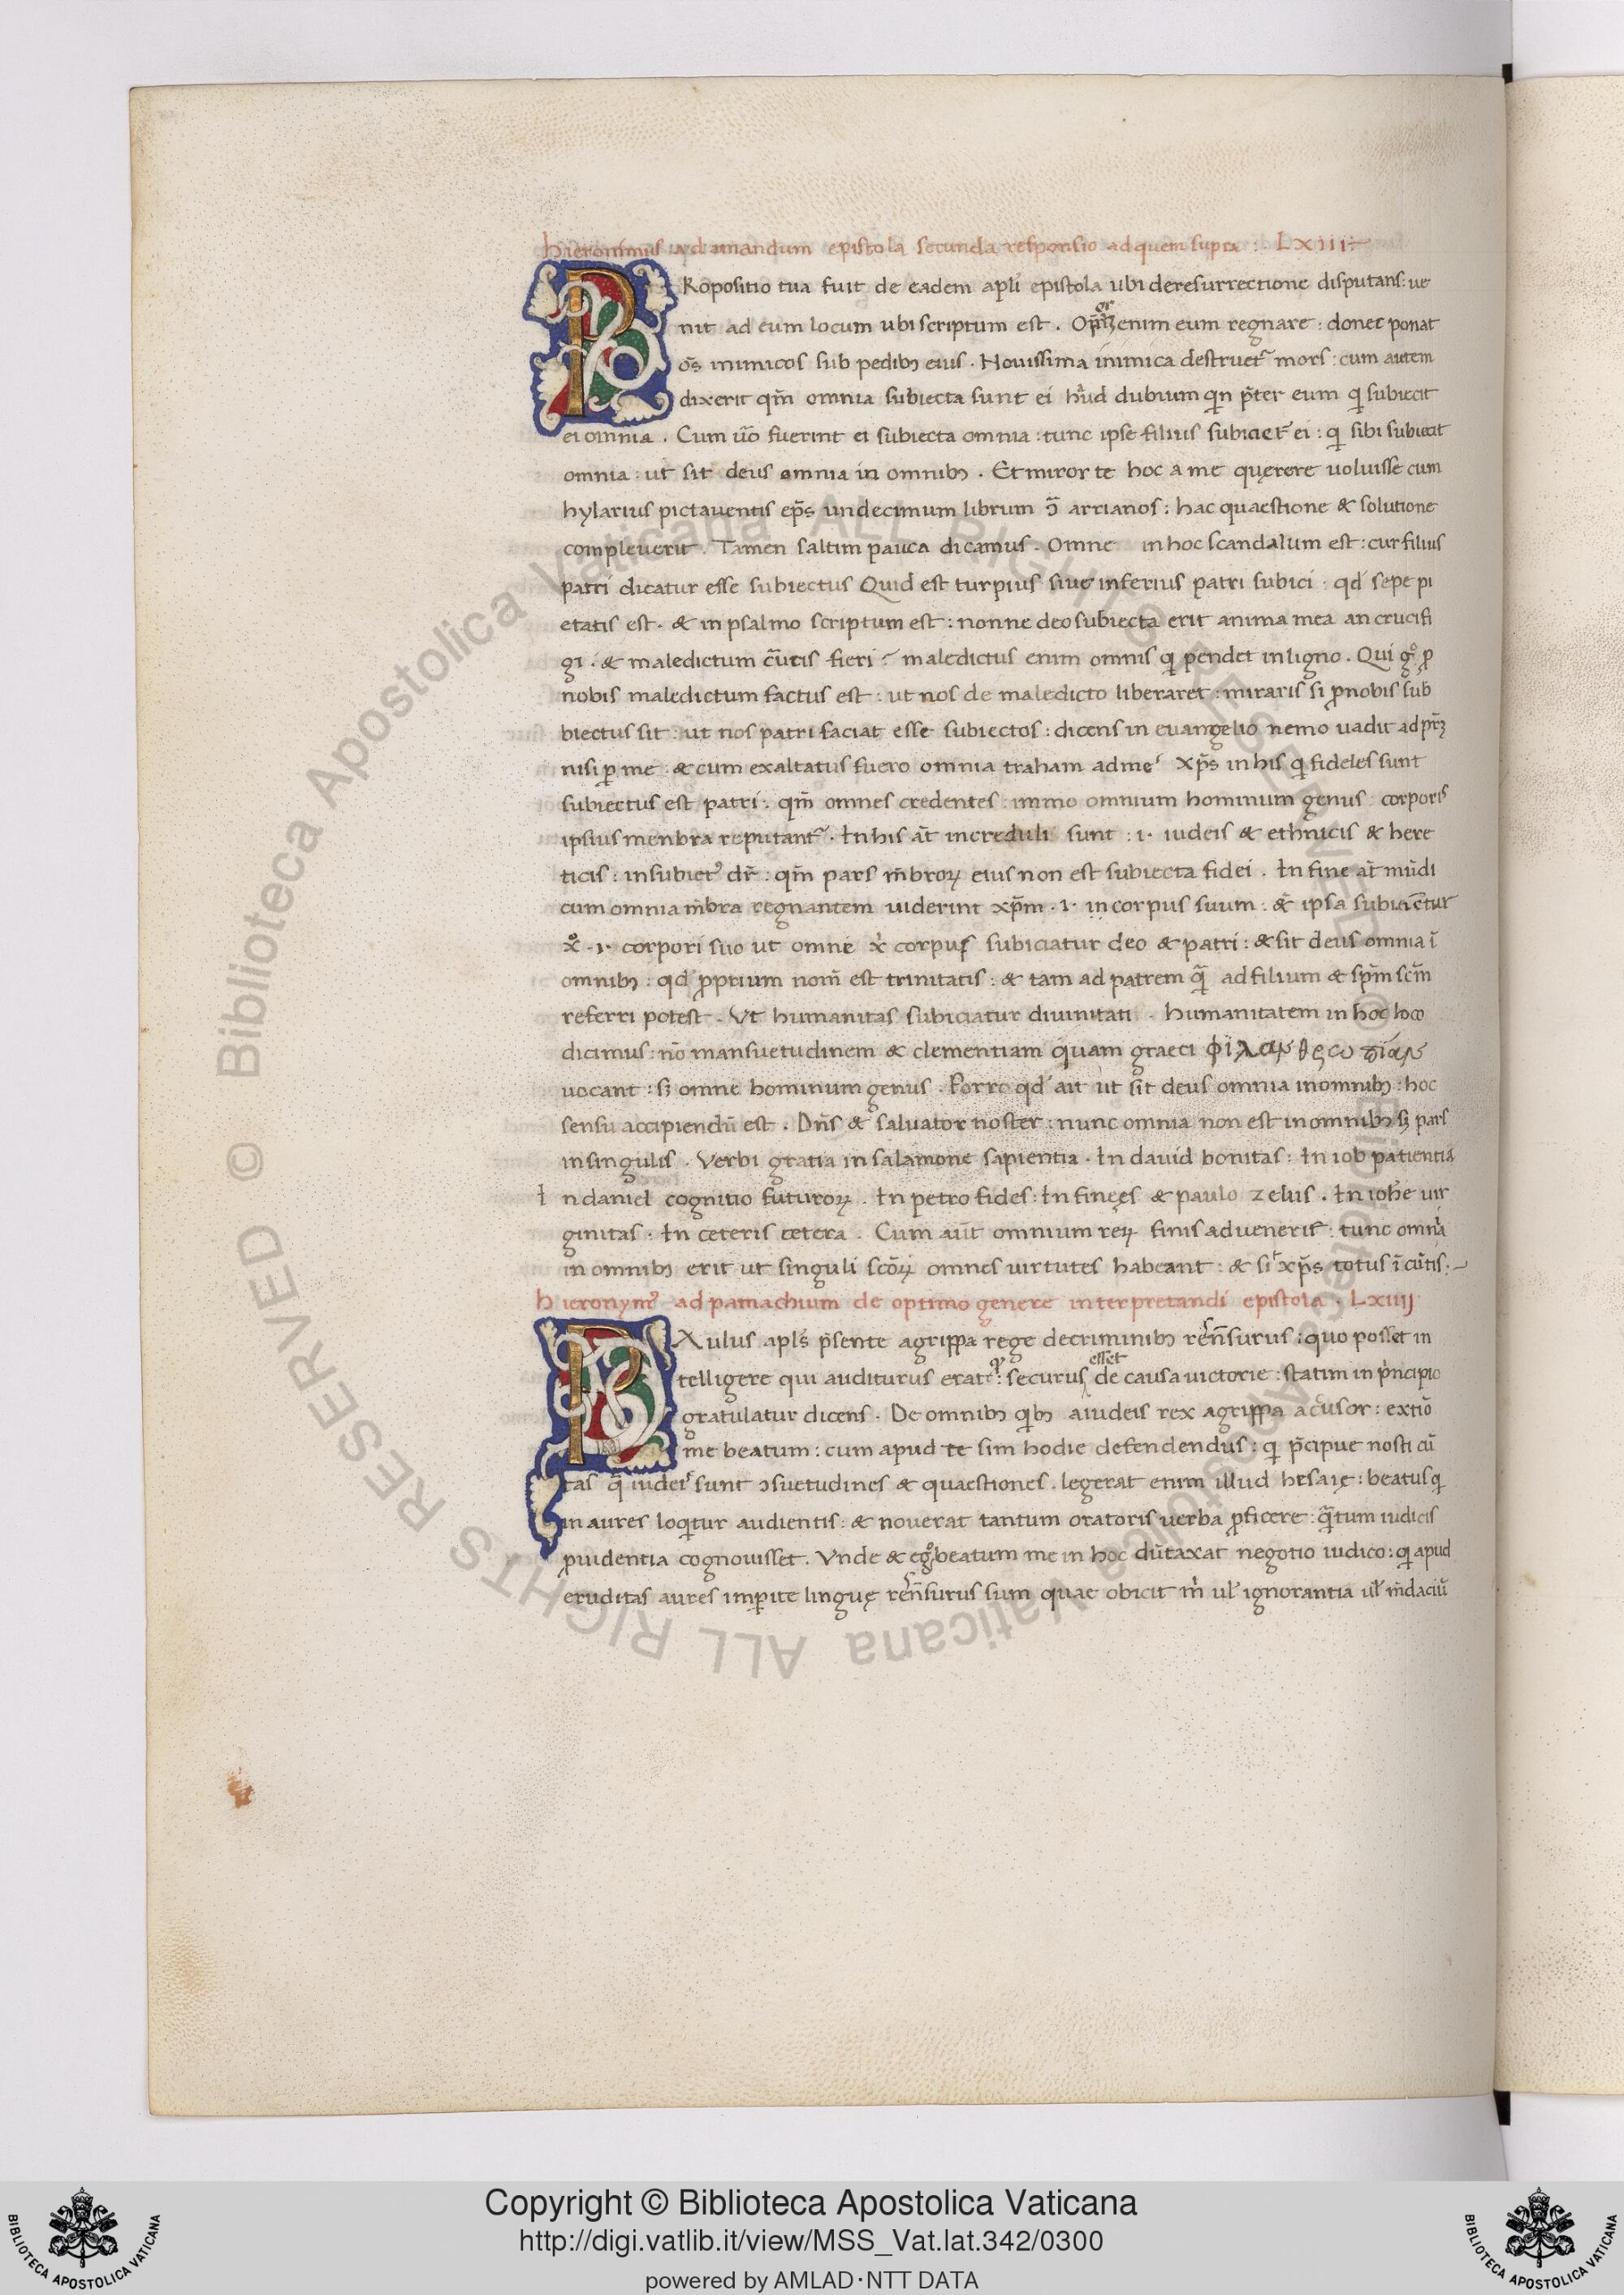 hieronimus ad amandum epistola secunda responsio ad quem supra : LXIII
PRopositio tua fuit de eadem apli epistola ubi deresurrectione disputans: ue
nit ad eum locum ubi scriptum est. enim eum regnare: donec ponat
oẽs inimicos sub pedibꝫ eius. Nouissima inimica destruet᷑ mors: cum autem
dixerit qm̃ omnia subiecta sunt ei haud dubium qin p̃ter eum qi subiecit
ei omnia. Cum ũo fuerint ei subiecta omnia: tunc ipse filius subiciet᷑ ei: qi sibi subiecit
omnia: ut sit deus omnia in omnibꝫ. Et miror te hoc a me quęrere uoluisse cum
hylarius pictauentis ep̃s undecimum librum ↄ̃ arrianos: hac quaestione & solutione
compleuerit. Tamen saltim pauca dicamus. Omne in hoc scandalum est: cur filius
patri dicatur esse subiectus Quid est turpius siue inferius patri subici: qd sepe pi
etatis est. & in psalmo scriptum est: nonne deo subiecta erit anima mea an crucifi
gi. & maledictum cr̃ucis fieri? maledictus enim omnis qi pendet in ligno. Qui gͦ ꝓ
nobis maledictum factus est: ut nos de maledicto liberaret: miraris si ꝓnobis sub
biectus sit: ut nos patri faciat esse subiectos: dicens in euangelio nemo uadit ad pr̃ꝫ
nisi ꝑ me. & cum exaltatus fuero omnia traham ad me? Xp̃s in his qi fideles sunt
subiectus est patri: qm̃ omnes credentes: immo omnium hominum genus: corporis
ipsius menbra reputant᷑. In his at̃ increduli sunt: .i. iudeis & ethnicis & here
ticis: insubiet᷑ dr̃: qm̃ pars m̃brorꝝ eius non est subiecta fidei. In fine at̃ mũdi
cum omnia m̃bra regnantem uiderint xp̃m .i. in corpus suum: & ipsa subiciẽtur
xͦ .i. corpori suo ut omne xͥ corpus subiciatur deo & patri: & sit deus omnia ĩ
omnibꝫ: qd ꝓprium nom̃ est trinitatis: & tam ad patrem q̃ ad filium & sp̃m scm̃
referri potest. Vt humanitas subiciatur diuinitati. humanitatem in hoc loco
dicimus: nõ mansuetudinem & clementiam quam graeci φιλανθρωπίαν
uocant: sꝫ omne hominum genus. Porro qd ait ut sit deus omnia in omnibꝫ: hoc
sensu accipiendũ est. Dñs & saluator noster: nunc omnia non est in omnibꝫ sꝫ pars
in singulis. Verbi gratia in salamone sapientia. In dauid bonitas: In iob patientia
In daniel cognitio futurorꝝ. In petro fides: In finęes & paulo zelus. In iohe uir
ginitas. In ceteris cetera. Cum aut̃ omnium rerꝝ finis aduenerit: tunc omnia
in omnibꝫ erit ut singuli scõrꝝ omnes uirtutes habeant: & sit xp̃s totus ĩ cũtis.
hieronym᷒ ad pamachium de optimo genere interpretandi epistola. LXIIII
PAulus apls p̃sente agrippa rege de criminibꝫ respõsurus: quo posset in
telligere qui auditurus erat: securus esset de causa uictorie: statim in pͥncipio
gratulatur dicens. De omnibꝫ qibꝫ a iudeis rex agrippa accusor: extiõ
me beatum: cum apud te sim hodie defendendus: qi p̃cipue nosti cũ
tas q̃ iudeis sunt ↄsuetudines & quaestiones. legerat enim illud hesaię: beatus qi
in aures loqitur audientis: & nouerat tantum oratoris uerba ꝓficere: q̃tum iudicis
prudentia cognouisset. Vnde & egͦ beatum me in hoc dũtaxat negotio iudico: qi apud
eruditas aures imperite linguę sum quae obicit mͥ ul ignorantia ul m̃daciũ
Copyright © Biblioteca Apostolica Vaticana
http://digi.vatlib.it/view/MSS_Vat.lat.342/0300
powered by AMLAD·NTT DATA
BIBLIOTECA APOSTOLICA VATICANA
BIBLIOTECA APOSTOLICA VATICANA
© Biblioteca Apostolica Vaticana ALL RIGHTS RESERVED
© Biblioteca Apostolica Vaticana ALL RIGHTS RESERVED